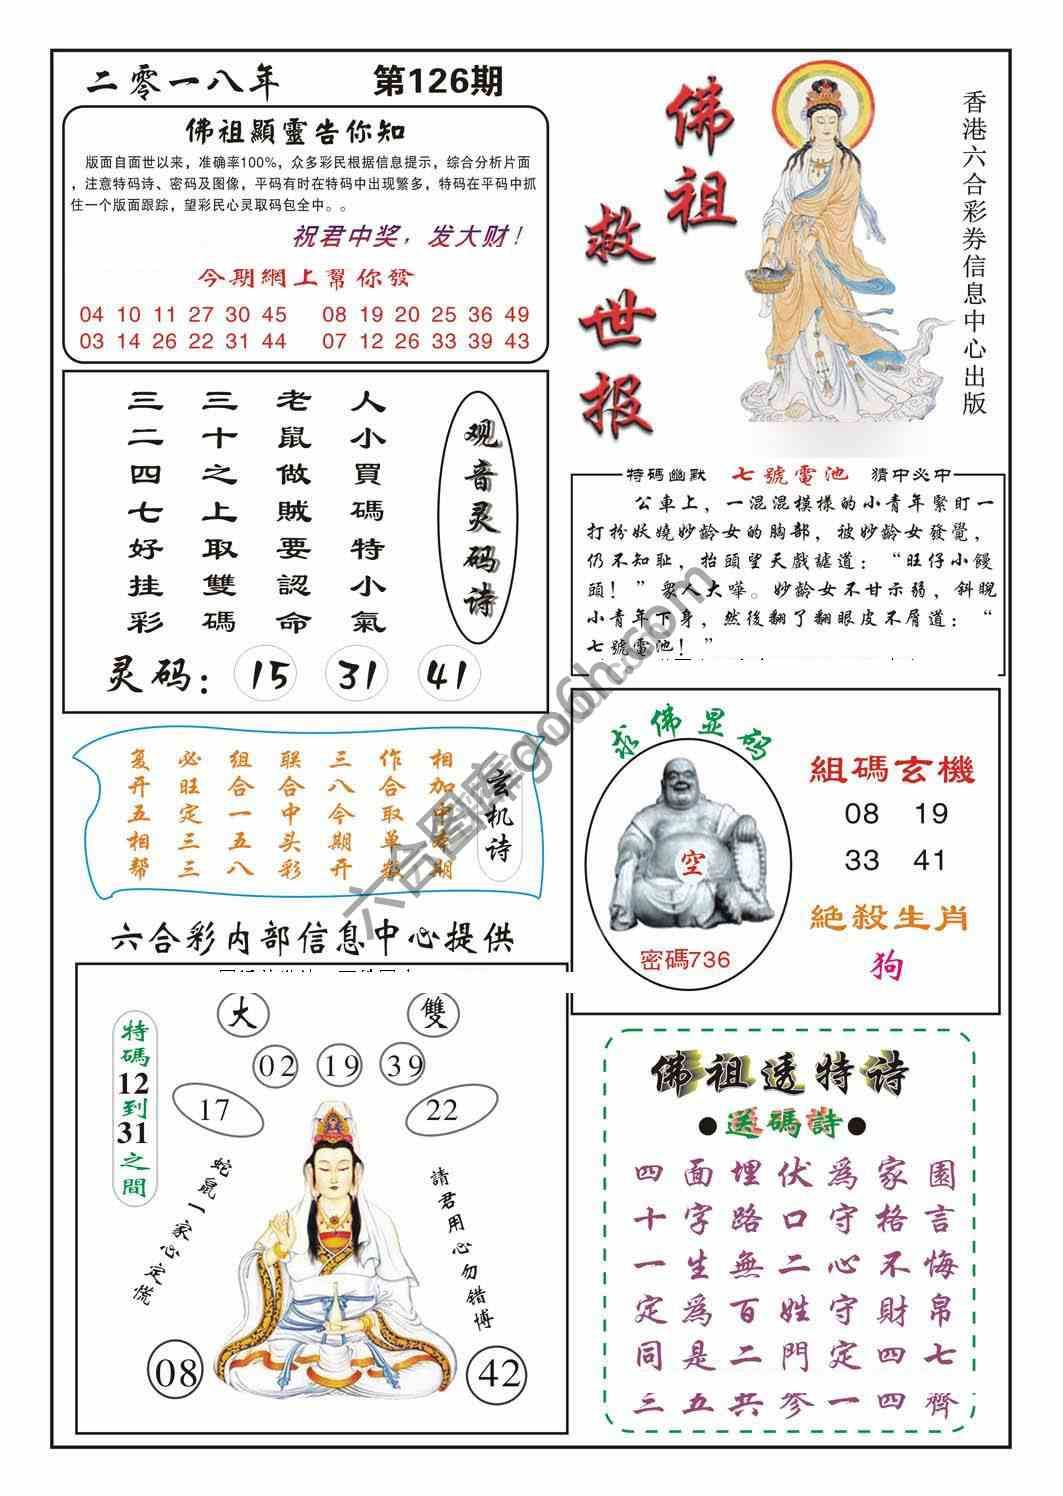 二零一八年 第126期
佛祖顯靈告你知
版面自面世以来，准确率100%，众多彩民根据信息提示，综合分析片面
，注意特码诗、密码及图像，平码有时在特码中出现繁多，特码在平码中抓
住一个版面跟踪，望彩民心灵取码包全中。。
祝君中奖，发大财！
今期網上幫你發
04 10 11 27 30 45 08 19 20 25 36 49
03 14 26 22 31 44 07 12 26 33 39 43
佛祖
救世报
香港六合彩券信息中心出版
观音灵码诗
人小買碼特小氣
老鼠做賊要認命
三十之上取雙碼
三二四七好挂彩
灵码：15 31 41
特碼幽默 七號電池 猜中必中
公車上，一混混模樣的小青年緊盯一
打扮妖嬈妙齡女的胸部，被妙齡女發覺，
仍不知耻，抬頭望天戲謔道：“旺仔小饅
頭！”衆人大嘩。妙齡女不甘示弱，斜睨
小青年下身，然後翻了翻眼皮不屑道：“
七號電池！”
玄机诗
相加中 期
作合取单数
三八今期开
联合中头彩
组合一五八
必旺定三三
复开五相帮
求佛显码
空
密碼736
組碼玄機
08 19
33 41
絕殺生肖
狗
六合彩内部信息中心提供
大 雙
02 19 39
17 22
特碼12到31之間
蛇鼠一家心定慌
請君用心勿错博
08 42
佛祖透特诗
●送碼詩●
四面埋伏爲家園
十字路口守格言
一生無二心不悔
定爲百姓守財帛
同是二門定四七
三五共参一四齊
六合图库go6h.com